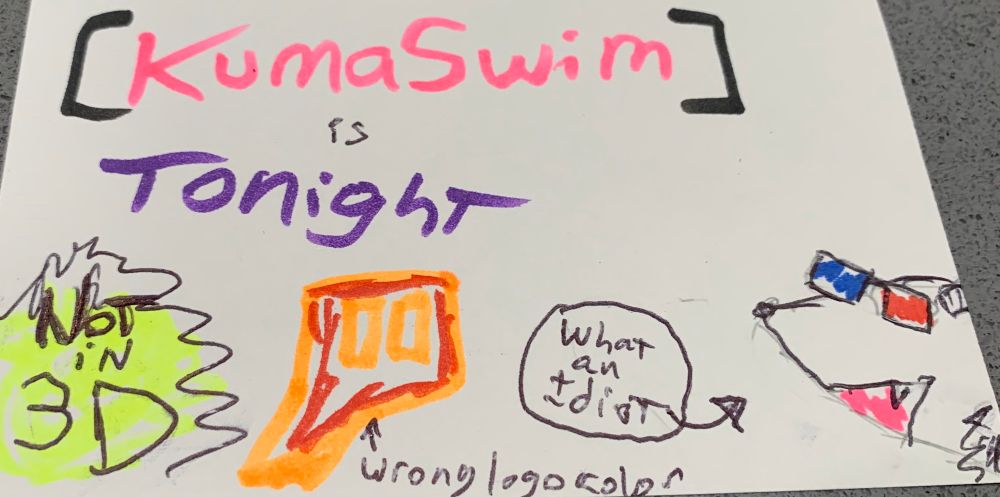 [KumaSwim]
is
Tonight
NOT
iN
3D
What
an
IdioT
wrong logo color